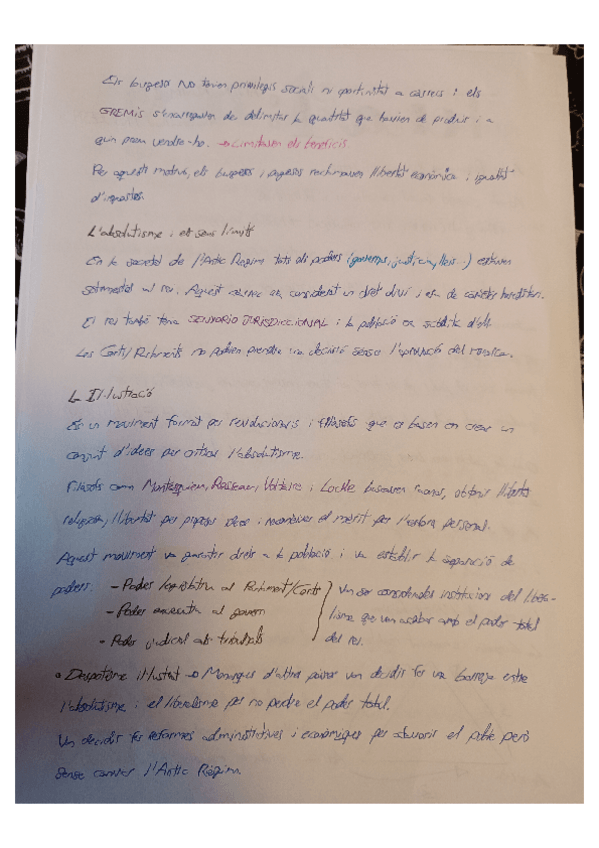 Els burgesos No tenien privilegis socials ni oportunitat a càrrecs i els
GREMIS s'encarregaven de delimitar la quantitat que havien de produir i a
quin preu vendre-ho. → Limitaven els beneficis.
Per aquests motius, els burgesos i pagesos reclamaven llibertat econòmica i igualtat
d'impostos.
L'absolutisme i els seus límits
En la societat de l'Antic Règim tots els poders (governs, justícia, lleis...) estaven
al rei. Aquest era considerat un dret diví i era de caràcter hereditari.
El rei també tenia SENYORIO JURISDICCIONAL i la població era súbdita d'ell.
Les Corts/Parlaments no podien prendre una decisió sense l'aprovació del monarca.
La Il·lustració
És un moviment format per revolucionaris i filòsofs que es basen en crear un
conjunt d'idees per criticar l'absolutisme.
Filòsofs com Montesquieu, Rosseau, Voltaire i Locke buscaven raonar, obtenir llibertat
religiosa, llibertat per pròpies idees i reconèixer el mèrit per l'esforç personal.
Aquest moviment va garantir drets a la població i va establir la separació de
poders. - Poder legislatiu al Parlament/Corts
- Poder executiu al govern
- Poder judicial als tribunals
Van ser considerades institucions del Libera-
lisme que van acabar amb el poder total
del rei.
• Despotisme il·lustrat → Monarques d'altres països van decidir fer una barreja entre
l'absolutisme i el liberalisme per no perdre el poder total.
Van decidir fer reformes administratives i econòmiques per afavorir el poble però
sense canviar l'Antic Règim.